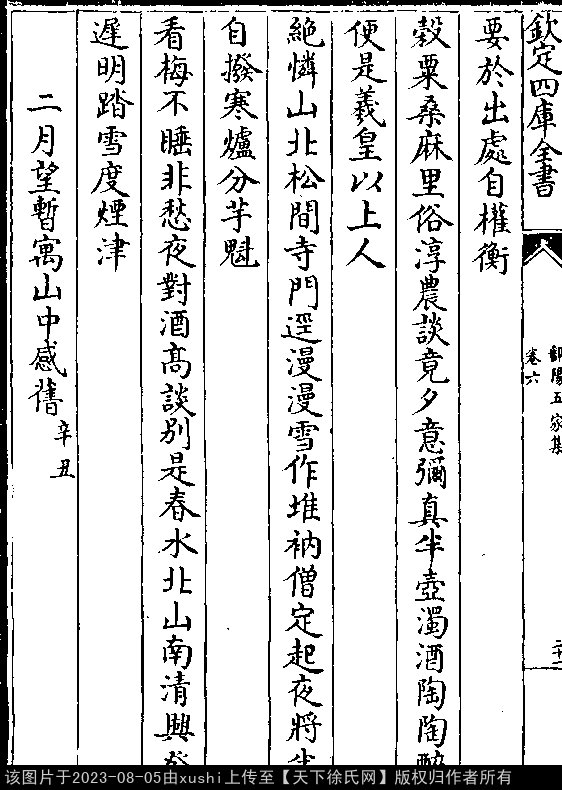 欽定四庫全書
鄱陽五家集
卷六
二十二
要於出處自權衡
榖粟桑麻里俗淳農談竟夕意彌真半壺濁酒陶陶醉
便是羲皇以上人
絶憐山北松間寺門逕漫漫雪作堆衲僧定起夜將半
自撥寒爐分芋魁
看梅不睡非愁夜對酒高談別是春水北山南清興發
遲明踏雪度煙津
二月望暫寓山中感舊辛丑
该图片于2023-08-05由xushi上传至【天下徐氏网】版权归作者所有